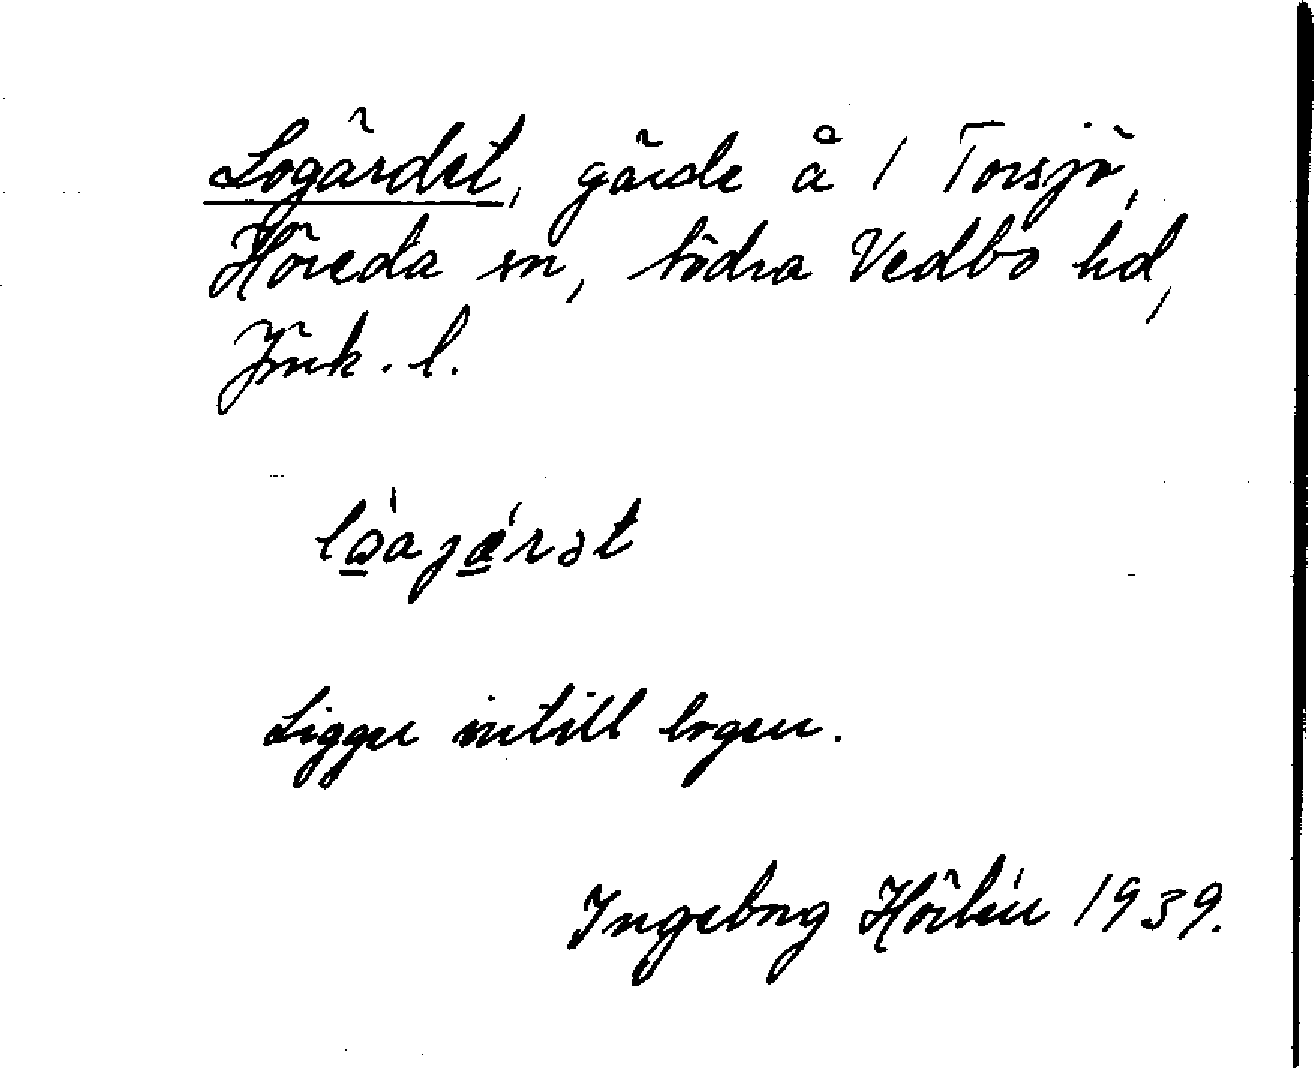 Logärdet, gärde å 1 Torsjö,
Höreda sn, Södra Vedbo hd,
Jönk. l.
lòajǽrət
Ligger intill logen.
Ingeborg Hörlén 1939.